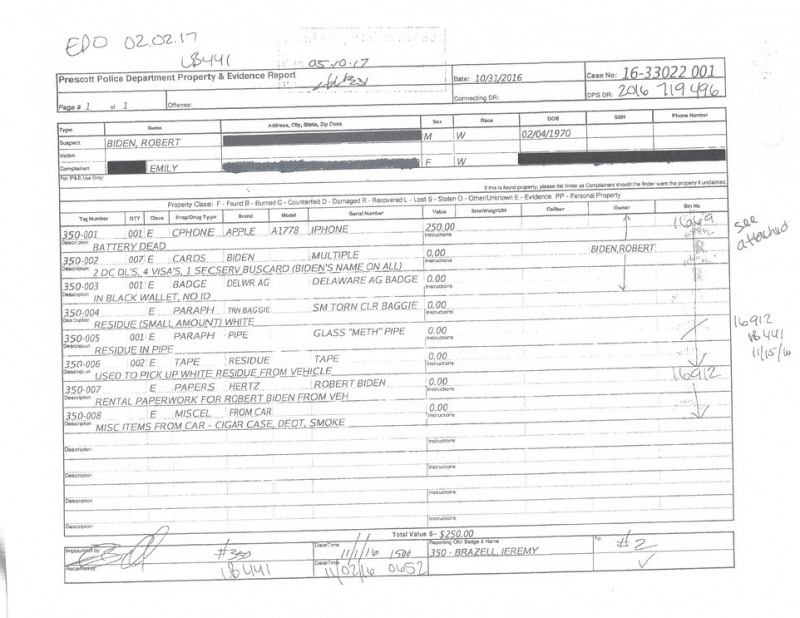 EDO 02.02.17
LB441
05.10.17
Prescott Police Department Property & Evidence Report
Date: 10/31/2016
Case No: 16-33022 001
Page # 1 of 1
Offense:
Connecting DR:
DPS DR: 2016 719 496
Type Name Address, City, State, Zip Code Sex Race DOB SSN Phone Number
Suspect BIDEN, ROBERT M W 02/04/1970
Victim
Complainant EMILY F W
For P&E Use Only
If this is found property, please list finder as Complainant should the finder want the property if unclaimed.
Property Class: F - Found B - Burned C - Counterfeit D - Damaged R - Recovered L - Lost S - Stolen O - Other/Unknown E - Evidence PP - Personal Property
Tag Number QTY Class Prop/Drug Type Brand Model Serial Number Value Size/Weight/UM Caliber Owner Bin No
350-001 001 E CPHONE APPLE A1778 IPHONE 250.00 1669
Description BATTERY DEAD Instructions
see attached
350-002 007 E CARDS BIDEN MULTIPLE 0.00 BIDEN,ROBERT
Description 2 DC DL'S, 4 VISA'S, 1 SECSERV BUSCARD (BIDEN'S NAME ON ALL) Instructions
350-003 001 E BADGE DELWR AG DELAWARE AG BADGE 0.00
Description IN BLACK WALLET, NO ID Instructions
350-004 E PARAPH TRN BAGGIE SM TORN CLR BAGGIE 0.00
Description RESIDUE (SMALL AMOUNT) WHITE Instructions
350-005 001 E PARAPH PIPE GLASS "METH" PIPE 0.00
Description RESIDUE IN PIPE Instructions
16912
LB441
11/15/16
350-006 002 E TAPE RESIDUE TAPE 0.00
Description USED TO PICK UP WHITE RESIDUE FROM VEHICLE Instructions
350-007 E PAPERS HERTZ ROBERT BIDEN 0.00 16912
Description RENTAL PAPERWORK FOR ROBERT BIDEN FROM VEH Instructions
350-008 E MISCEL FROM CAR 0.00
Description MISC ITEMS FROM CAR - CIGAR CASE, DEOT, SMOKE Instructions
Description Instructions
Description Instructions
Description Instructions
Description Instructions
Total Value $- $250.00
Impounded by #350 Date/Time 11/1/16 1500 Reporting Ofcr Badge & Name 350 - BRAZELL, JEREMY To #2
Received by LB441 Date/Time 11/02/16 0652